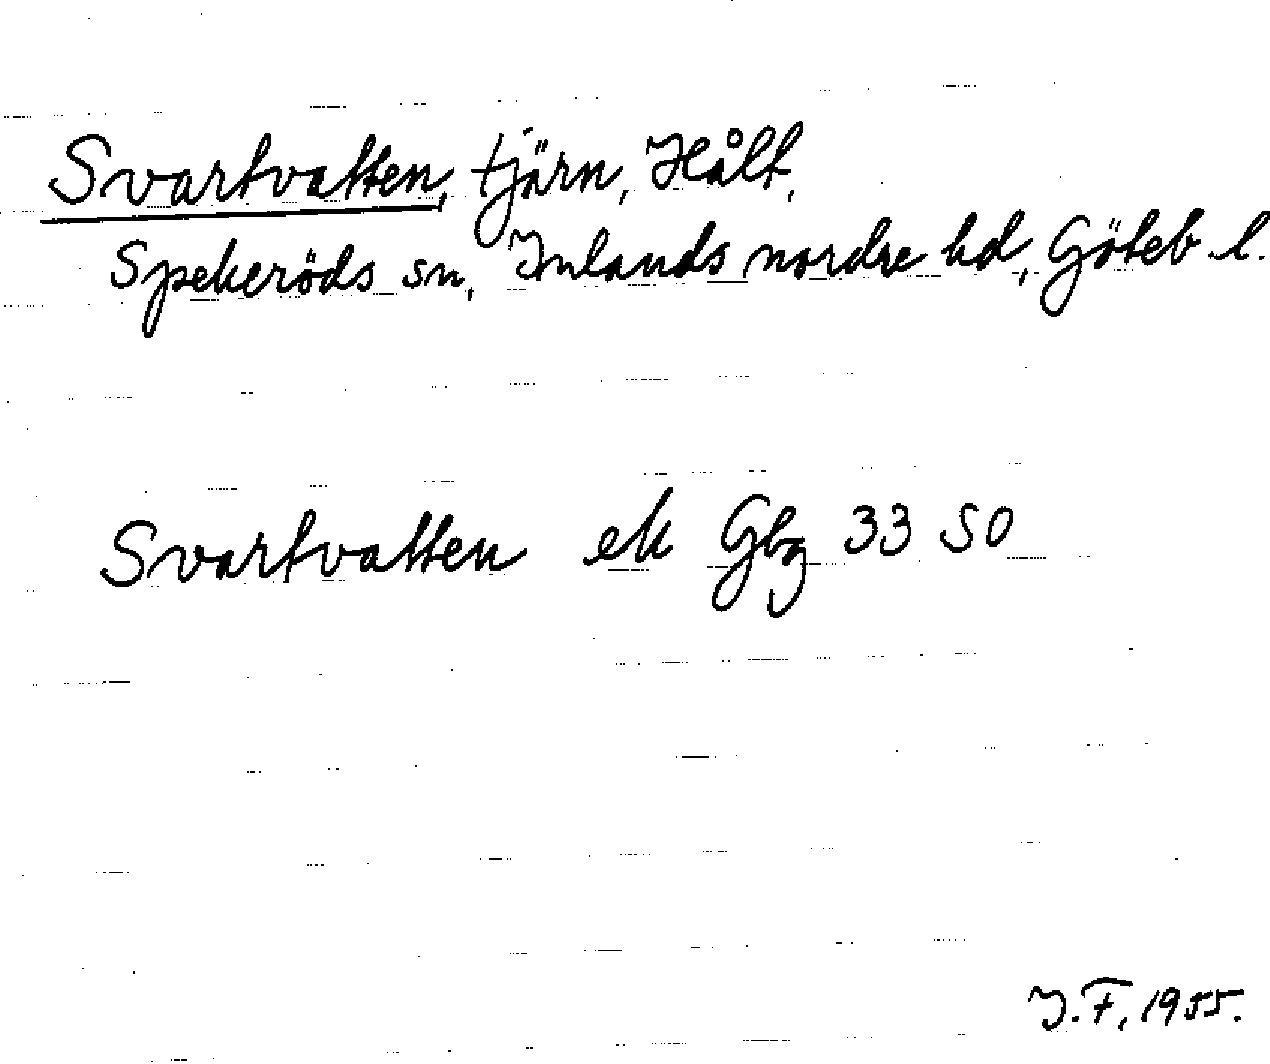 Svartvatten, tjärn, Hålt,
Spekeröds sn, Inlands nordre hd, Göteb l.
Svartvatten ek Gbg 33 SO
J.F, 1955.